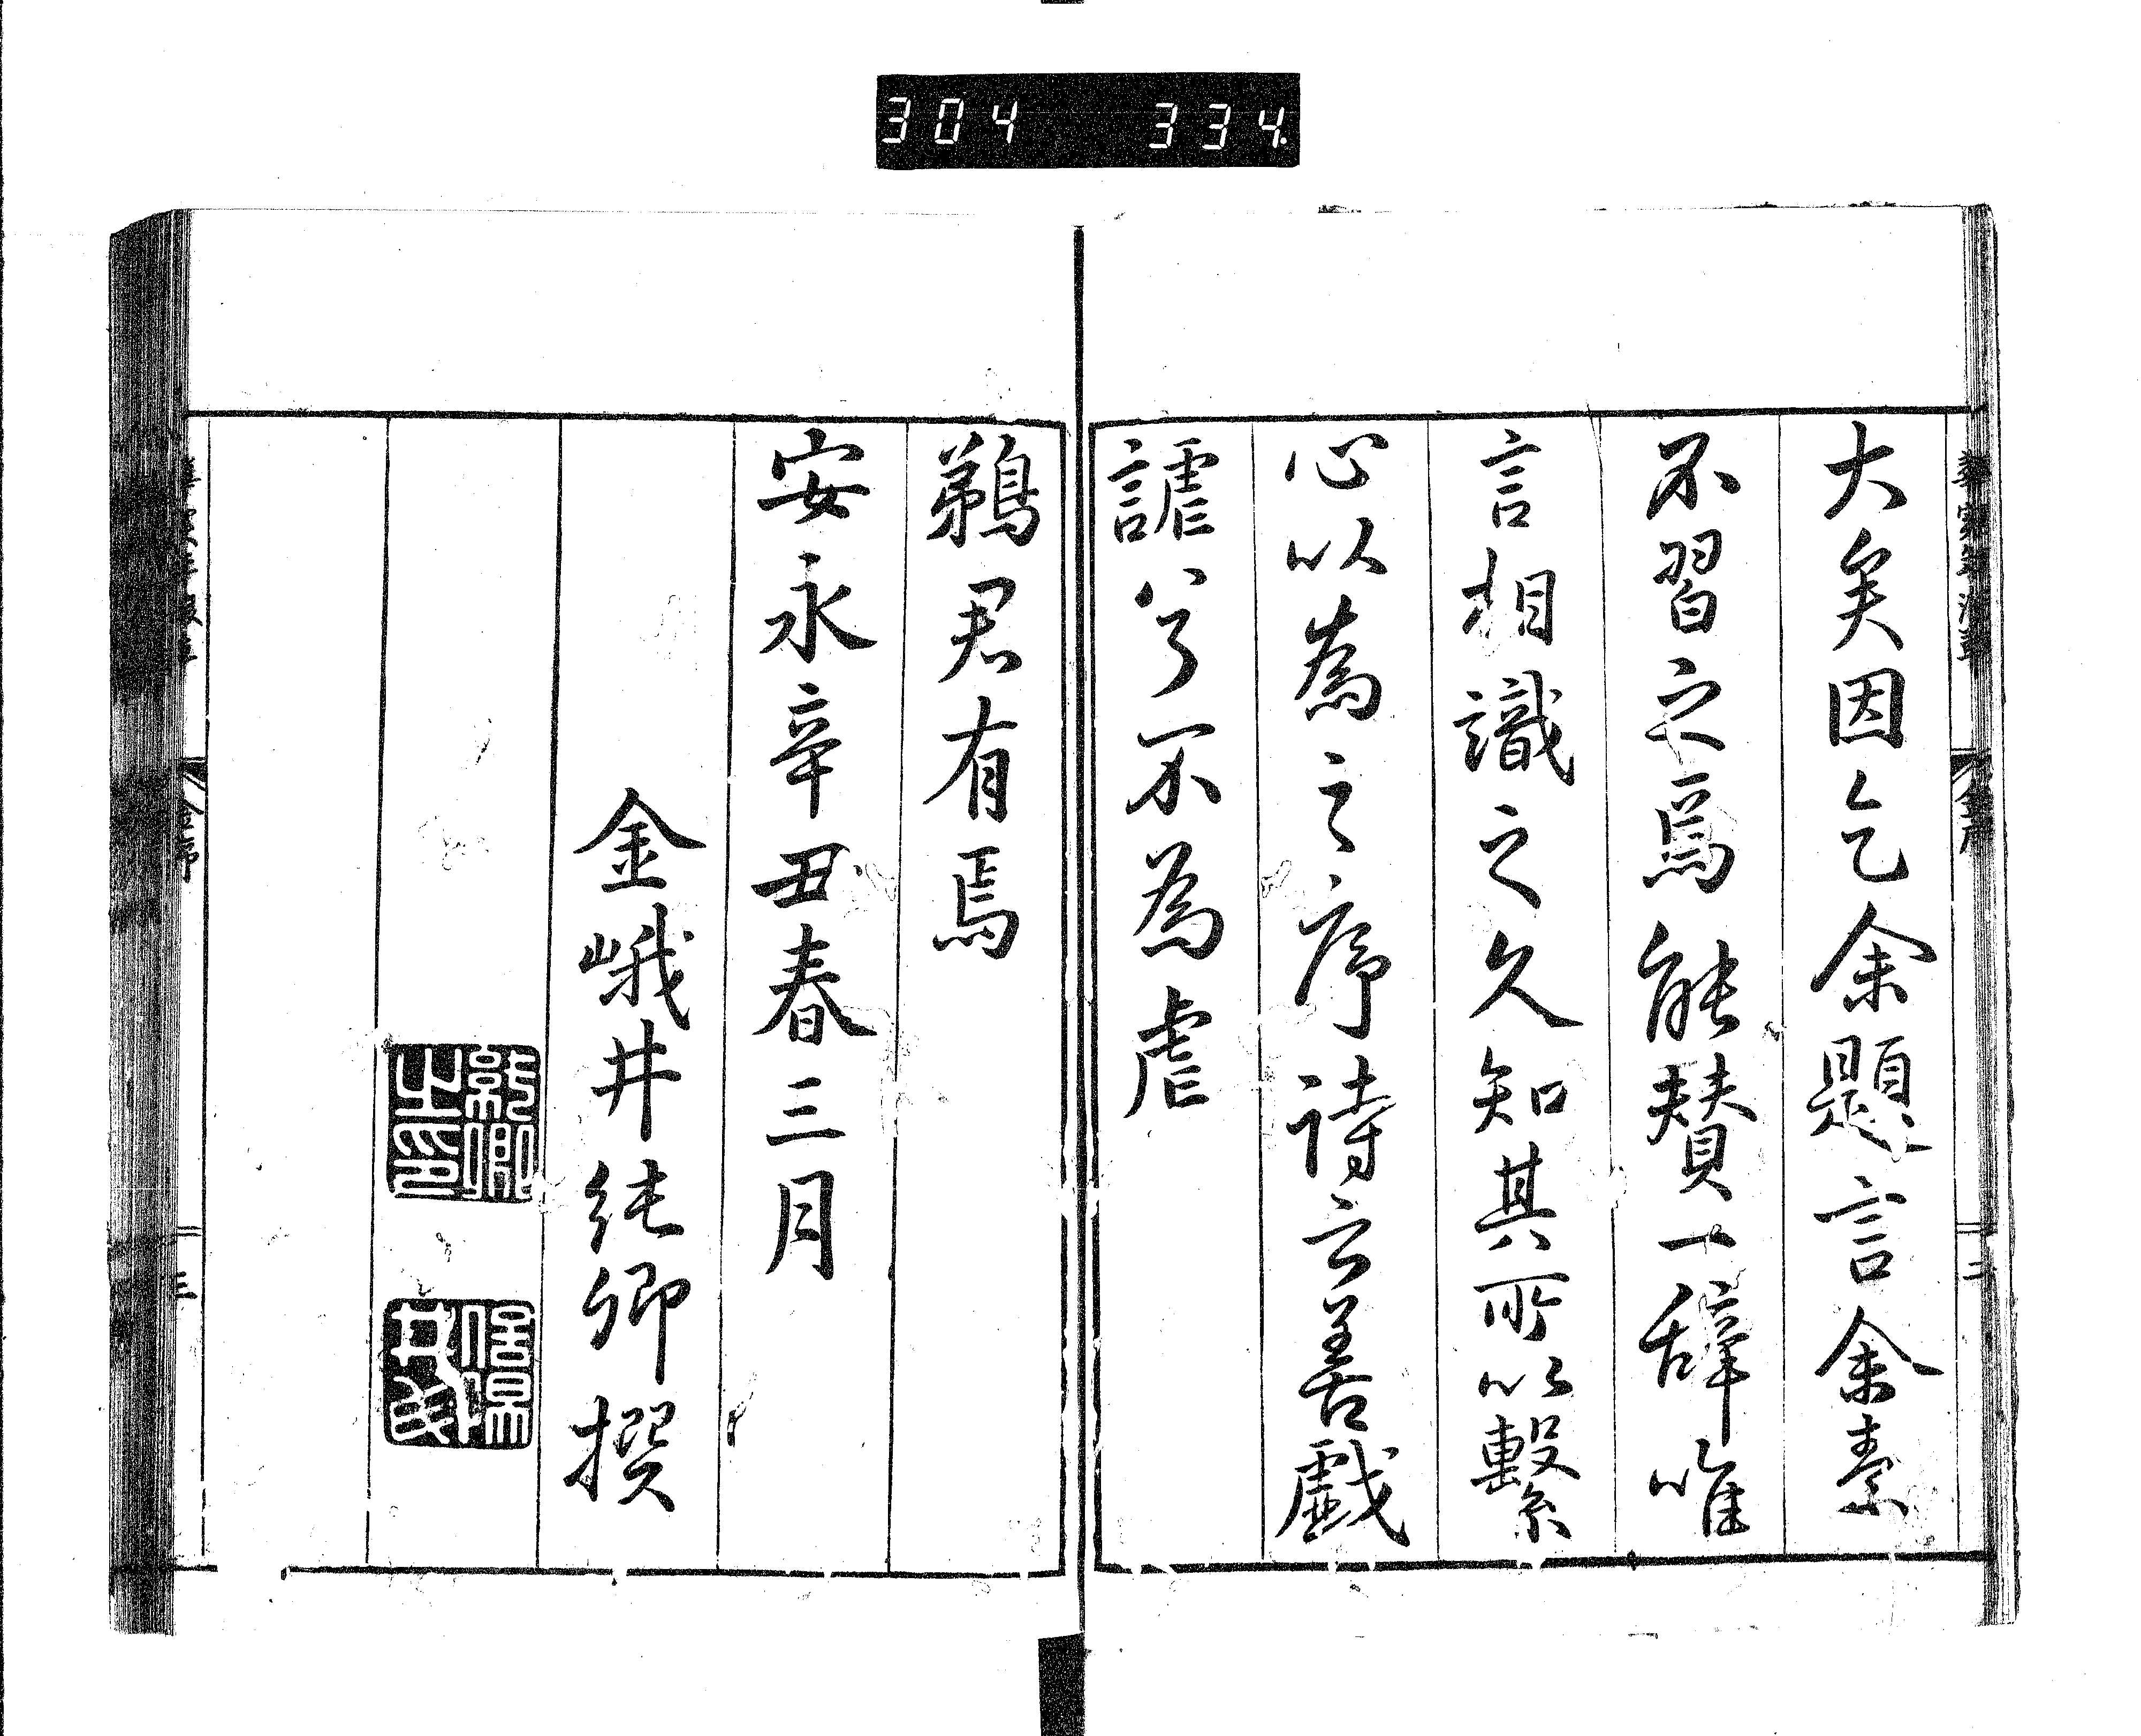 304 334
大矣因乞余題言余素
不習之焉能賛一辭唯
言相識之久知其所以繫
心以為之序詩云善戯
謔兮不為虐
鵜君有焉
安永辛丑春三月
金峨井純卿撰
純卿之印
井氏
金序
二
三